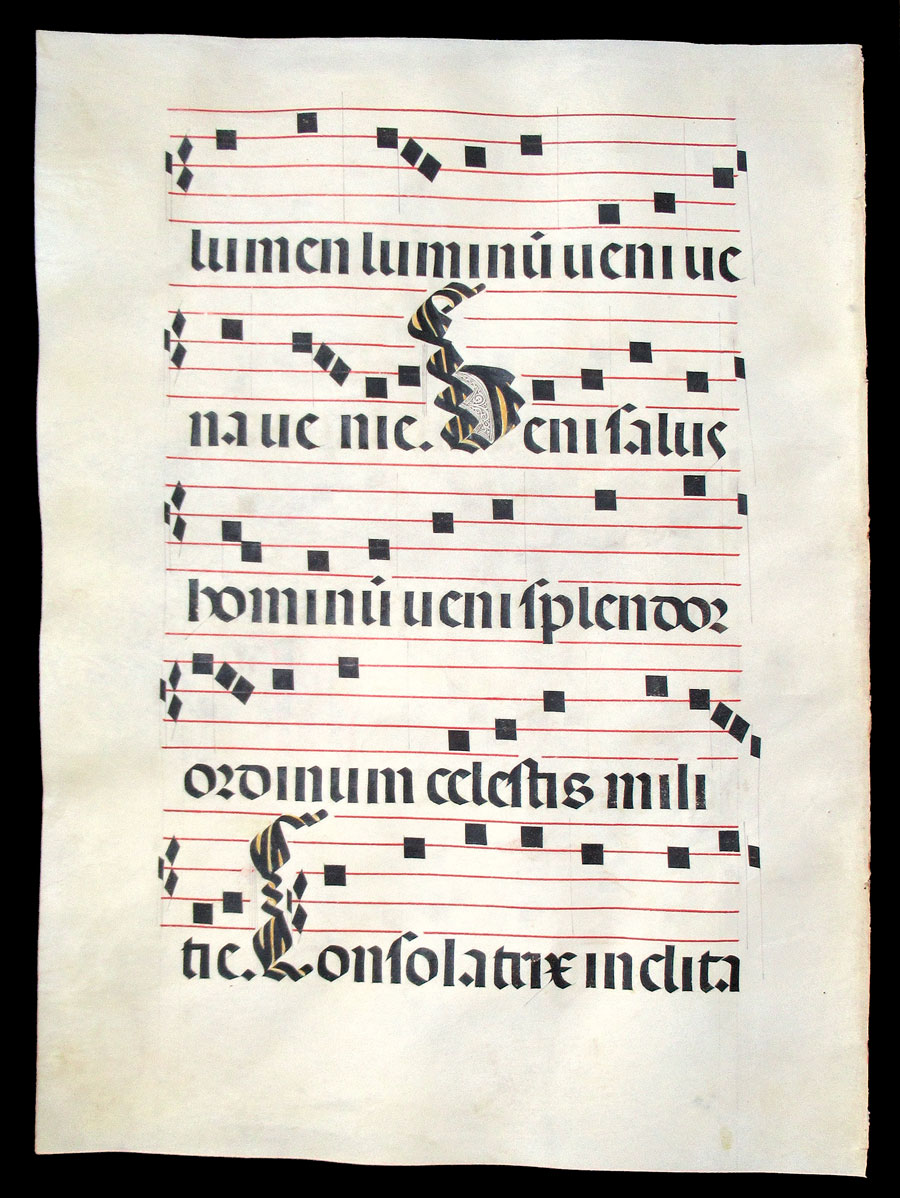 lumen luminū ueni ue
na ue nie. Ueni salus
hominū ueni splendor
ordinum celestis mili
tie. Consolatrix inclita